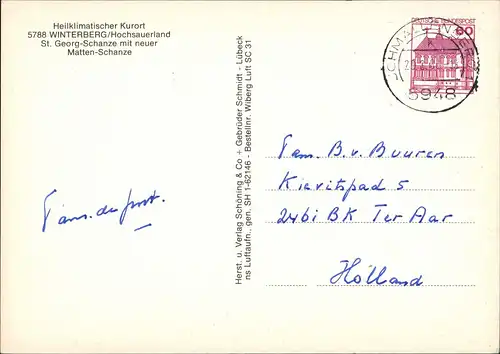 Heilklimatischer Kurort
5788 WINTERBERG/Hochsauerland
St. Georg-Schanze mit neuer
Matten-Schanze
Fam. de
Herst. u. Verlag Schöning & Co + Gebrüder Schmidt - Lübeck
ns Luftaufn., gen. SH 1-62146 - Bestellnr. Wiberg Luft SC 31
DEUTSCHE BUNDESPOST
60
SCHMALLENBERG
5948
Fam. B. v. Buuren
Kievitspad 5
2461 BK Ter Aar
Holland